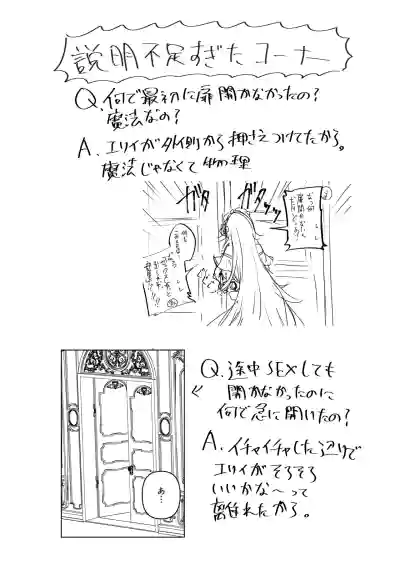 説明不足すぎたコーナー
Q.何で最初に扉開かなかったの?
魔法なの?
A.エリィが外側から押さえつけてたから。
魔法じゃなくて物理
ガタ
ガタッ
Q.途中SEXしても
開かなかったのに
何で急に開いたの?
A.イチャイチャした辺りで
エリィがそろそろ
いいかな〜って
離れたから。
あ…